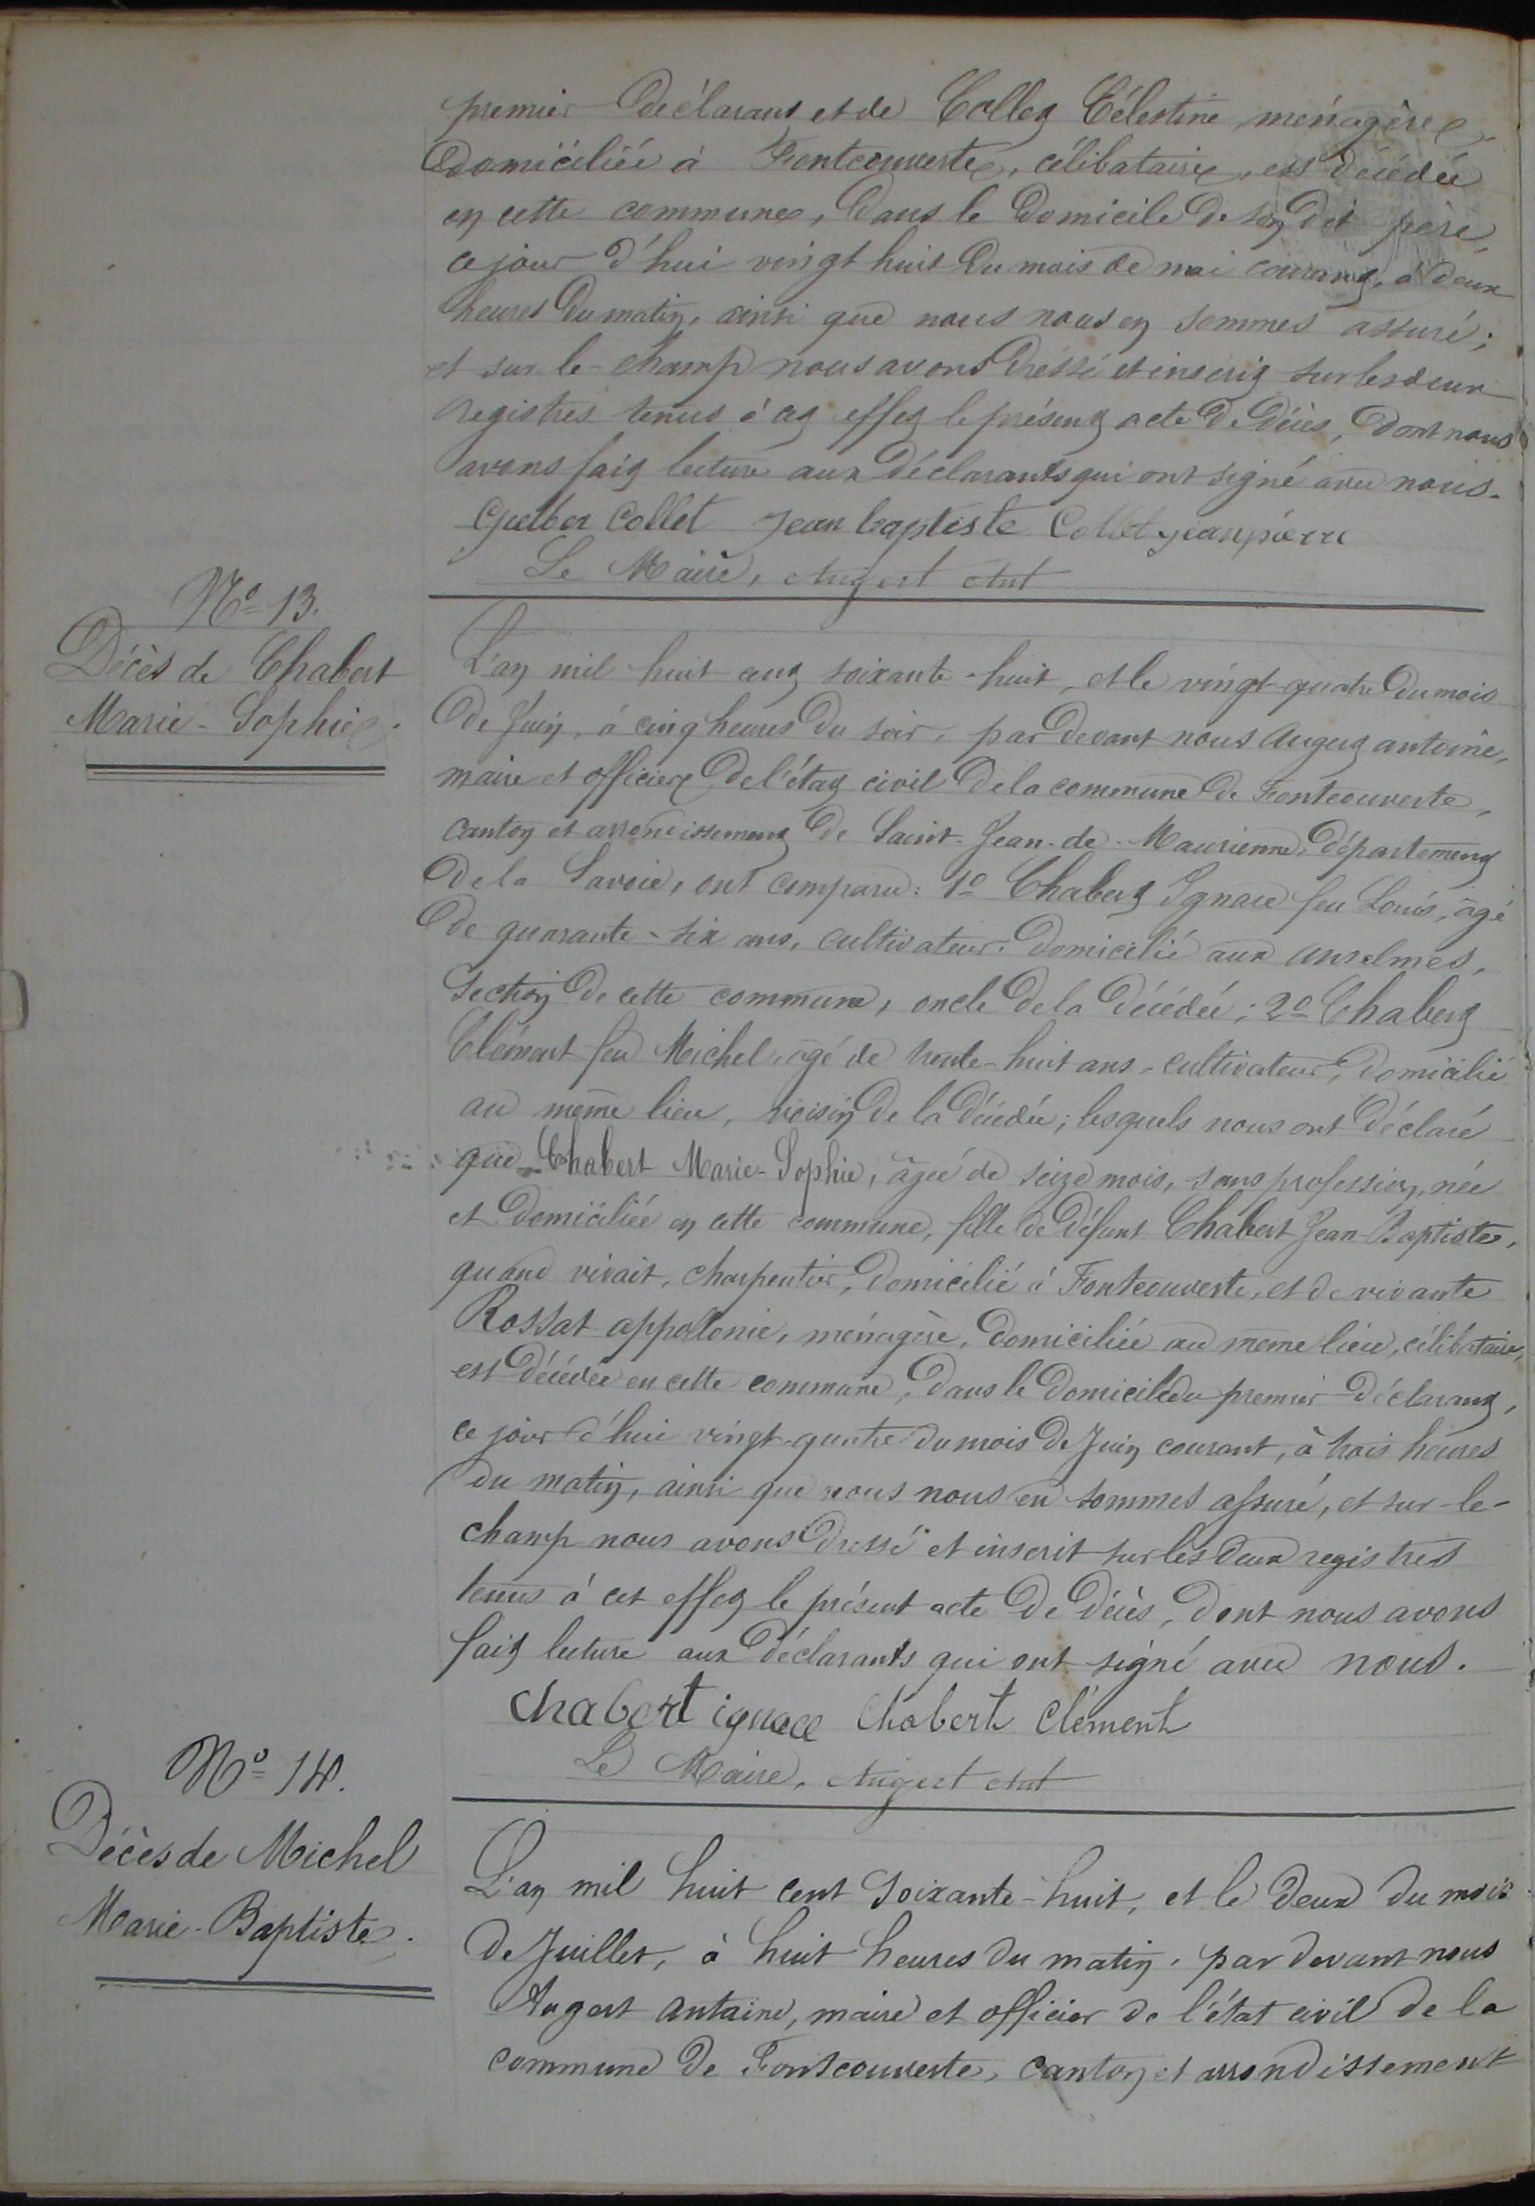 premier déclarant et de Collet Célestine, ménagère,
domiciliée à Fontcouverte, célibataire, est décédée
en cette commune, dans le domicile de son dit père,
ce jour d'hui vingt huit du mois de mai courant, à deux
heures du matin, ainsi que nous nous en sommes assuré;
et sur le-champ nous avons dressé et inscrit sur les deux
registres tenus à cet effet le présent acte de décès, dont nous
avons fait lecture aux déclarants qui ont signé avec nous.
Collet Jean baptiste Collet jean pierre
Le Maire, Augert Ant
N° 13.
Décès de Chabert
Marie-Sophie.
L'an mil huit cent soixante-huit, et le vingt-quatre du mois
de Juin, à cinq heures du soir, par devant nous Augert antoine,
maire et officier de l'état civil de la commune de Fontcouverte,
canton et arrondissement de Saint-Jean-de-Maurienne, département
de la Savoie, ont comparu: 1° Chabert Ignace feu Louis, âgé
de quarante-six ans, cultivateur, domicilié aux anselmes,
section de cette commune, oncle de la décédée; 2° Chabert
Clément feu Michel, âgé de trente-huit ans, cultivateur, domicilié
au même lieu, voisin de la décédée; lesquels nous ont déclaré
que Chabert Marie-Sophie, âgée de seize mois, sans profession, née
et domiciliée en cette commune, fille de défunt Chabert Jean-Baptiste,
quand vivait, charpentier, domicilié à Fontcouverte, et de vivante
Rossat appolonie, ménagère, domiciliée au même lieu, célibataire,
est décédée en cette commune, dans le domicile du premier déclarant,
ce jour d'hui vingt-quatre du mois de Juin courant, à trois heures
du matin, ainsi que nous nous en sommes assuré, et sur-le-
champ nous avons dressé et inscrit sur les deux registres
tenus à cet effet le présent acte de décès, dont nous avons
fait lecture aux déclarants qui ont signé avec nous.
Chabert ignace Chabert Clément
Le Maire, Augert Ant
N° 14.
Décès de Michel
Marie-Baptiste.
L'an mil huit cent soixante-huit, et le deux du mois
de Juillet, à huit heures du matin, par devant nous
Augert antoine, maire et officier de l'état civil de la
commune de Fontcouverte, canton et arrondissement